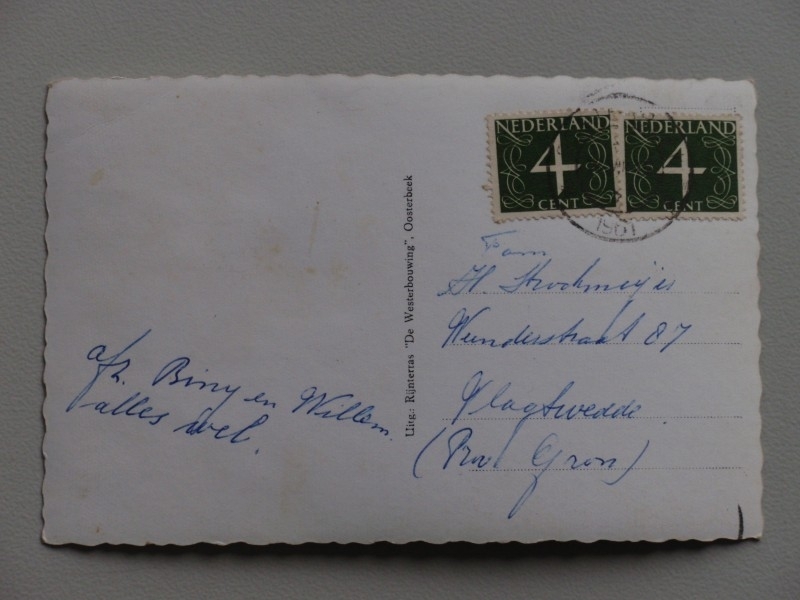 NEDERLAND
4
CENT
NEDERLAND
4
CENT
1961
Uitg.: Rijnterras "De Westerbouwing", Oosterbeek
Fam
H. Strockmeijer
Wendersstraat 87
Vlagtwedde.
(Prov Gron)
afz. Biny en Willem.
alles wel.